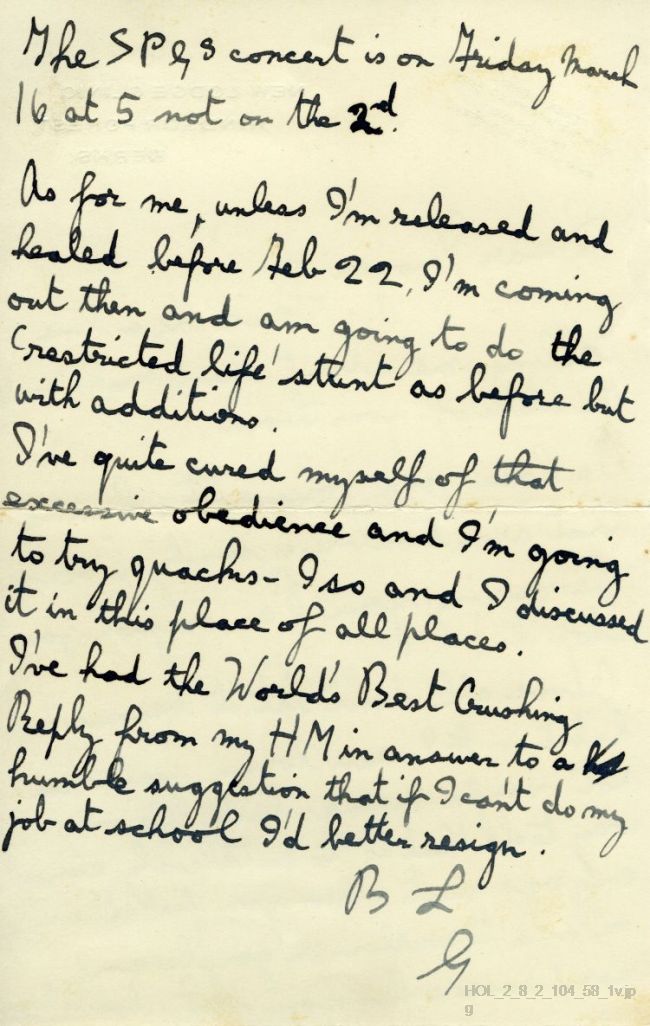 The SPGS concert is on Friday March
16 at 5 not on the 2nd.
As for me, unless I'm released and
healed before Feb 22, I'm coming
out then and am going to do the
'restricted life' stunt as before but
with additions.
I've quite cured myself of that
excessive obedience and I'm going
to try quacks - Iso and I discussed
it in this place of all places.
I've had the World's Best Crushing
Reply from my HM in answer to a
humble suggestion that if I can't do my
job at school I'd better resign.
B L
G
HOL_2_8_2_104_58_1v.jp
g